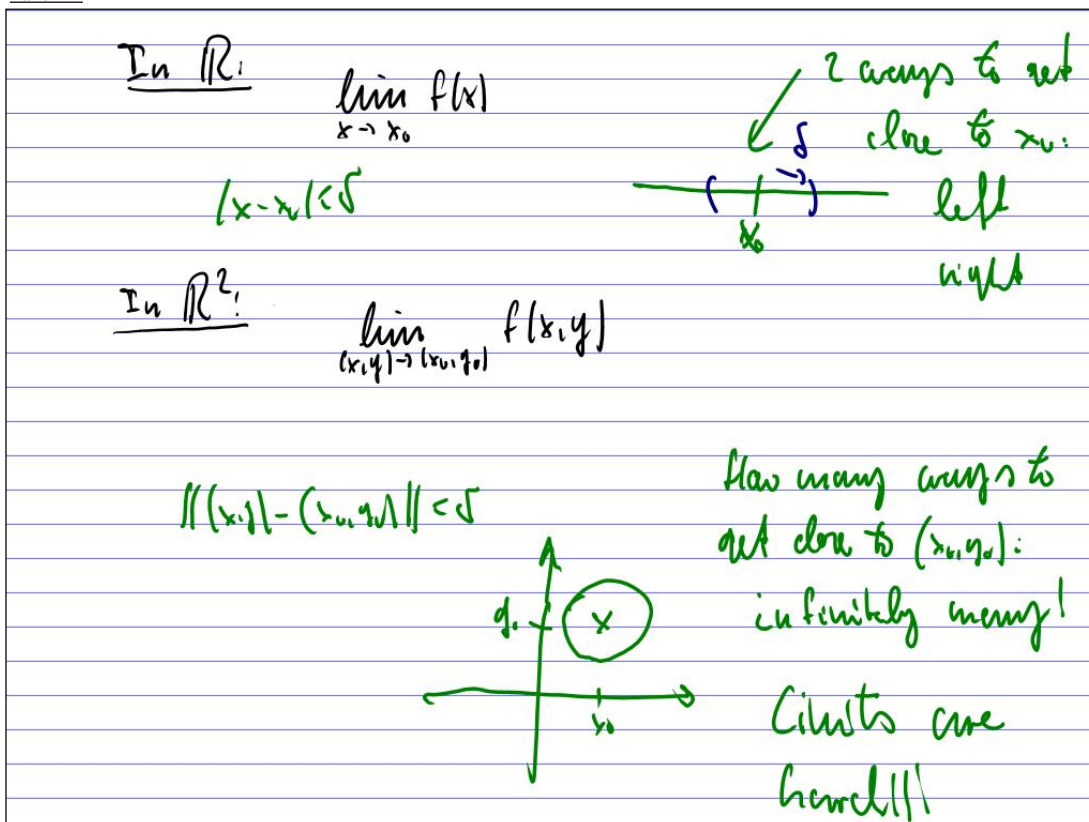 In ℝ:
lim f(x)
x→x₀
|x-x₀|<δ
2 ways to get
close to x₀:
left
right
δ
x₀
In ℝ²:
lim f(x,y)
(x,y)→(x₀,y₀)
||(x,y)-(x₀,y₀)||<δ
How many ways to
get close to (x₀,y₀):
infinitely many!
y₀
x
x₀
Limits are
hard!!!